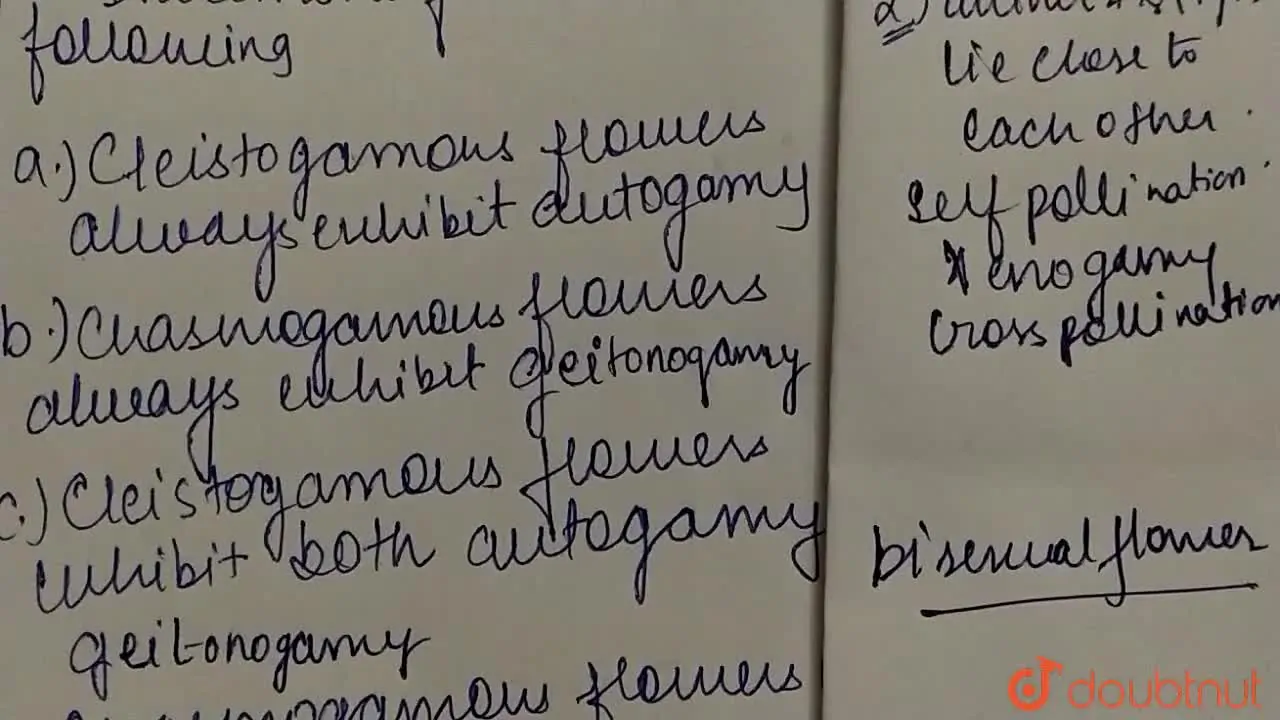 following
a.) Cleistogamous flowers
always exhibit autogamy
b.) Chasmogamous flowers
always exhibit geitonogamy
c.) Cleistogamous flowers
exhibit both autogamy
geitonogamy
flowers
2)
lie close to
each other.
Self pollination.
Xenogamy
Cross pollination
bisexual flower
doubtnut